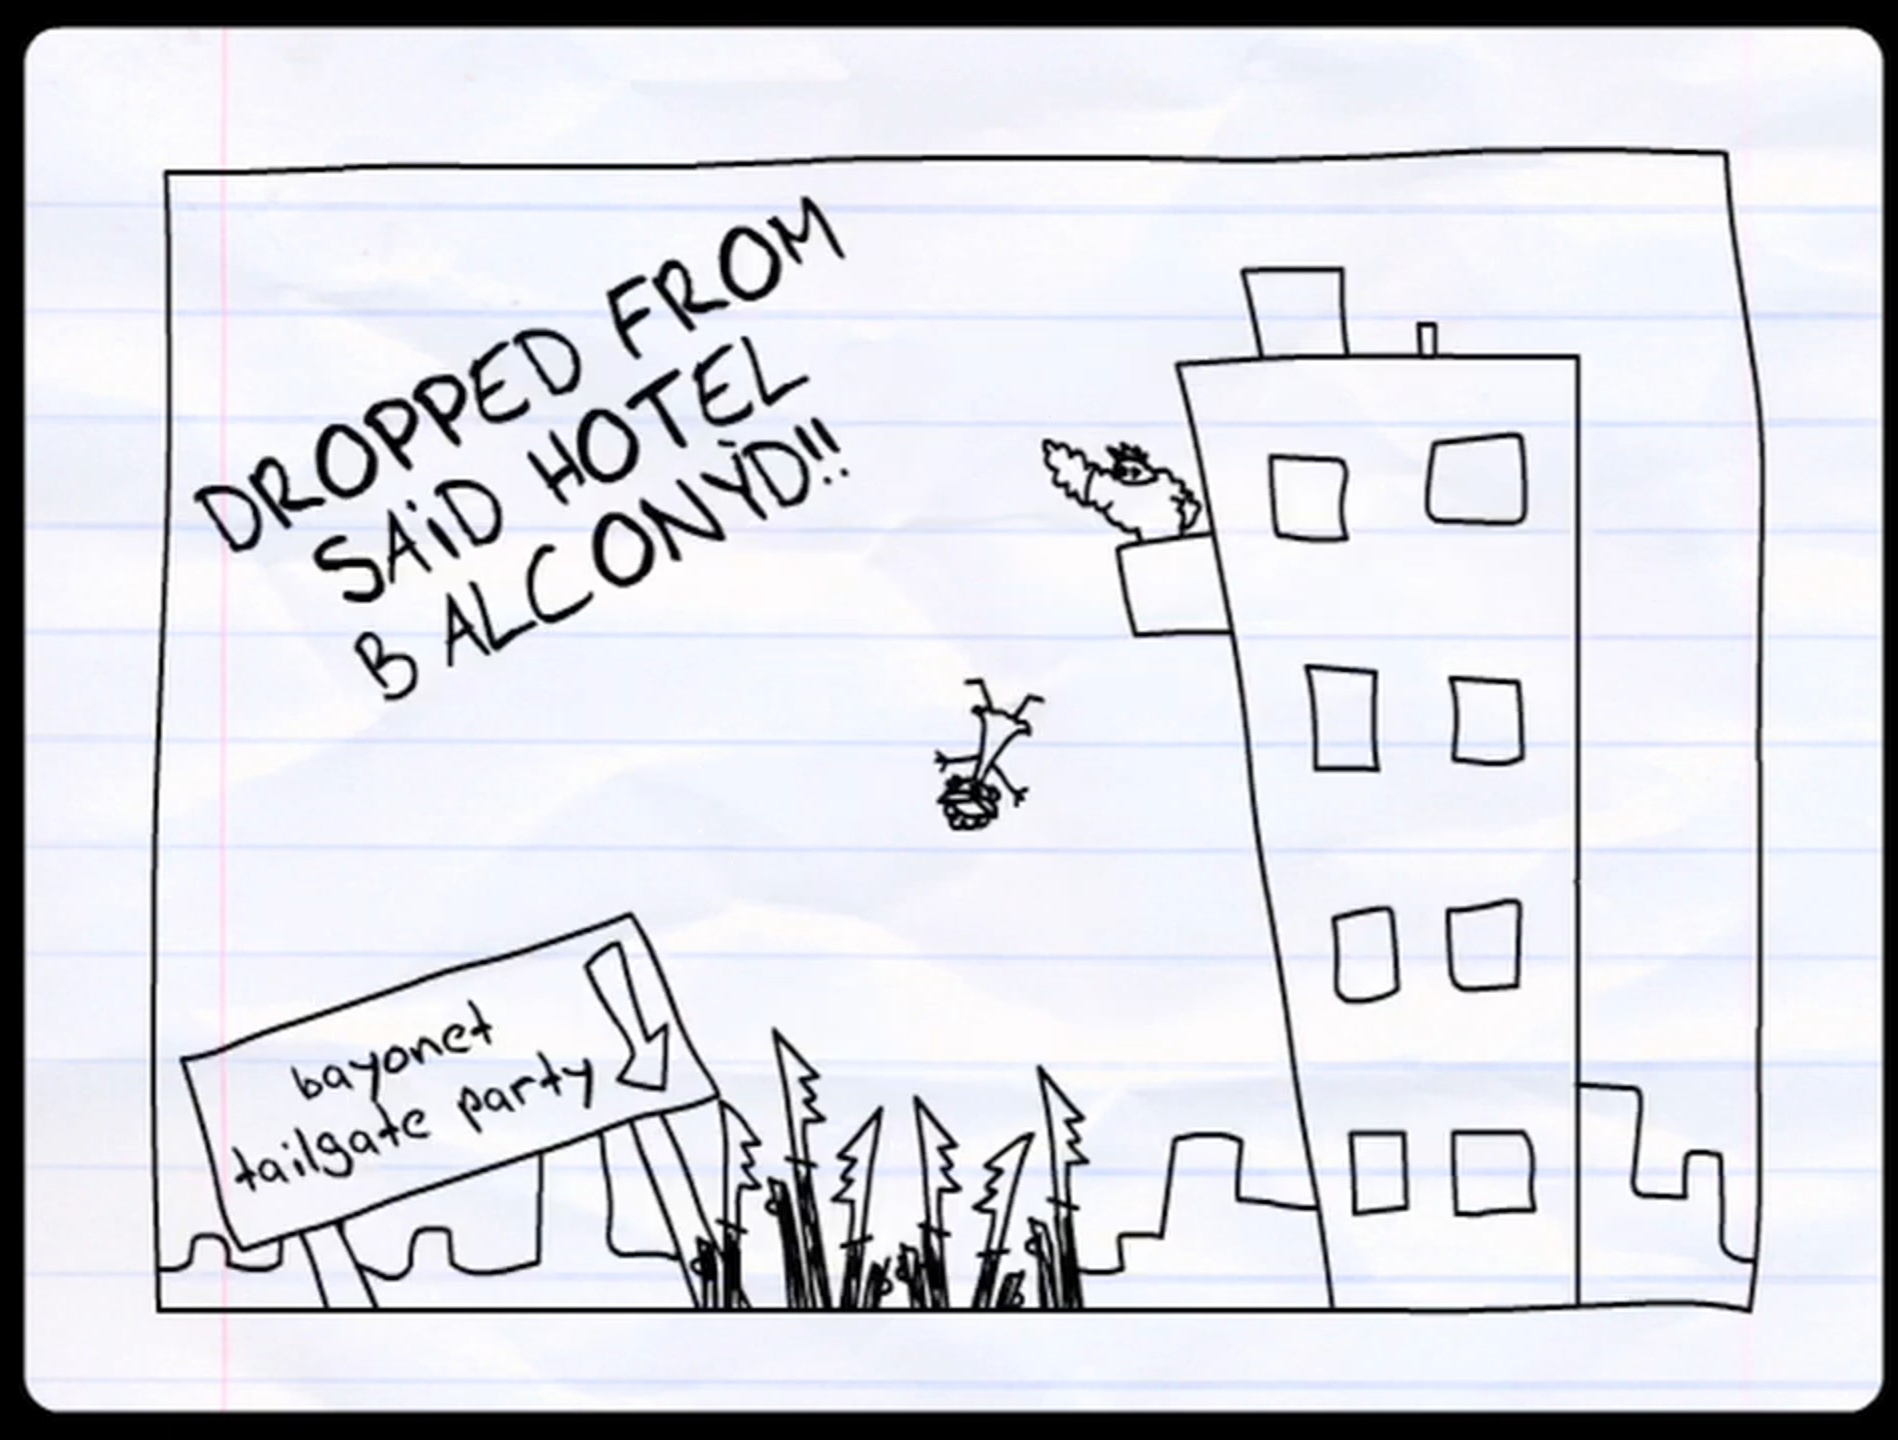 DROPPED FROM
SAiD HOTEL
BALCONY'D!!
bayonet
tailgate party